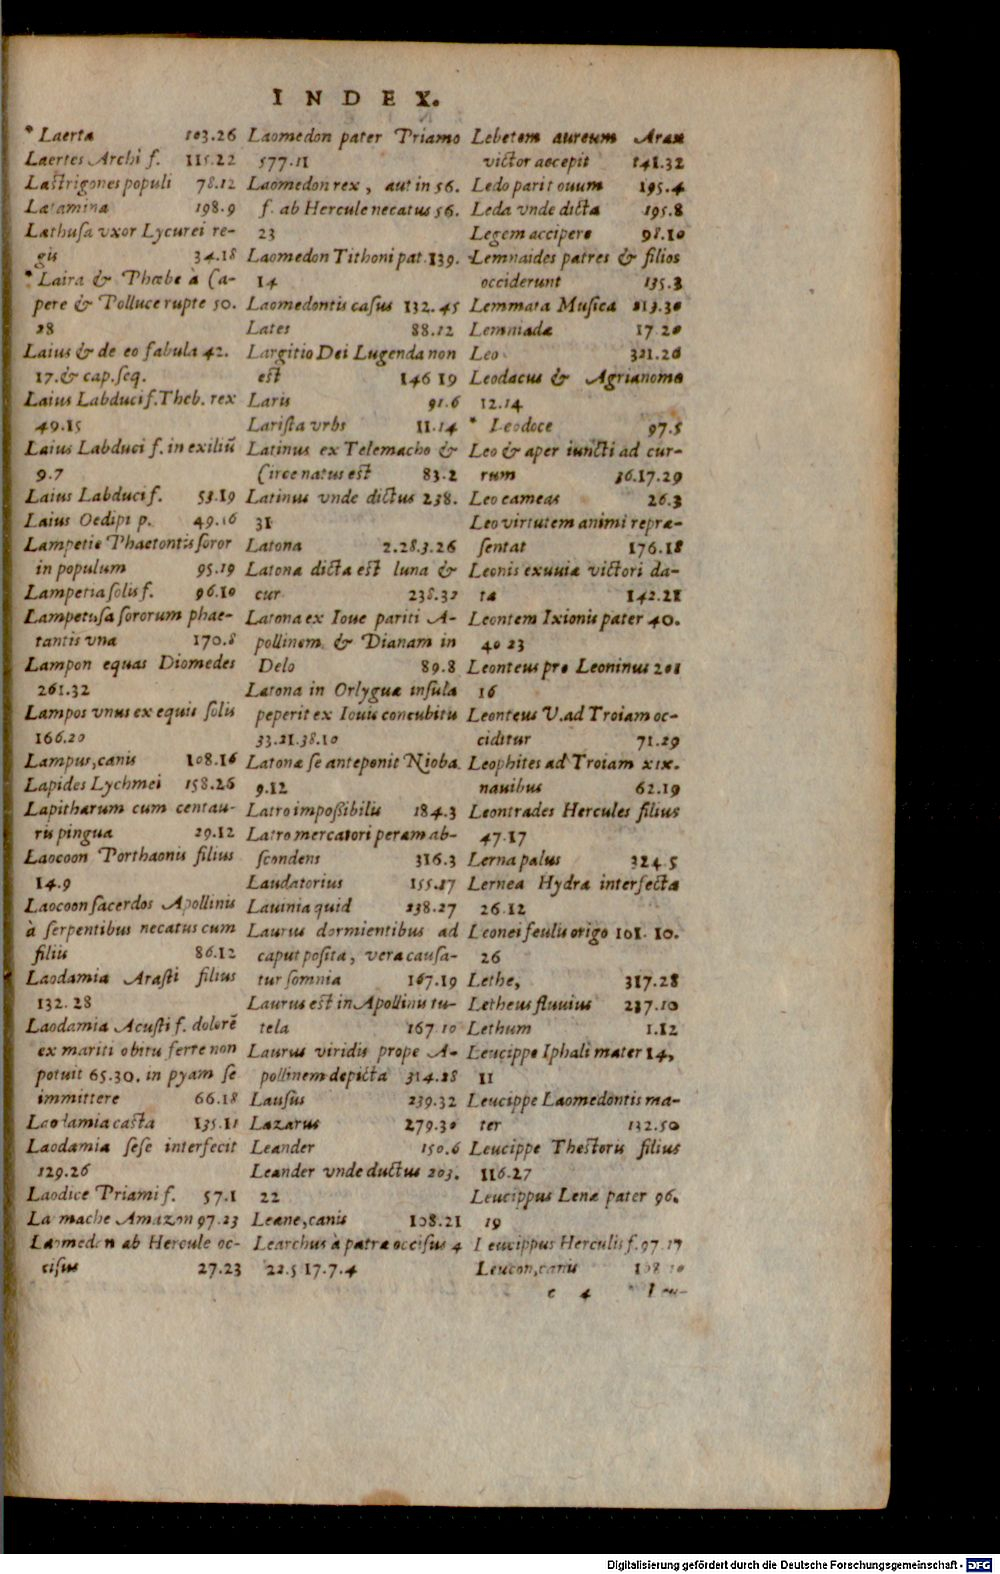 INDEX.
* Laerta 103.26
Laertes Archi f. 115.22
Lastrigones populi 78.12
Latamina 198.9
Lathusa vxor Lycurei re-
gis 34.18
* Laira & Phœbe à Ca-
pere & Polluce rupte 50.
28
Laius & de eo fabula 42.
17. & cap. seq.
Laius Labduci f. Theb. rex
49.15
Laius Labduci f. in exiliū
9.7
Laius Labduci f. 53.19
Laius Oedipi p. 49.16
Lampetie Phaetontis soror
in populum 95.19
Lampetia solis f. 96.10
Lampetusa sororum phae-
tantis vna 170.8
Lampon equas Diomedes
261.32
Lampos vnus ex equis solis
166.20
Lampus, canis 108.16
Lapides Lychmei 158.26
Lapitharum cum centau-
ris pingua 29.12
Laocoon Porthaonis filius
14.9
Laocoon sacerdos Apollinis
à serpentibus necatus cum
filiis 86.12
Laodamia Arasti filius
132.28
Laodamia Acusti f. dolorē
ex mariti obitu ferre non
potuit 65.30. in pyam se
immittere 66.18
Laodamia casta 135.11
Laodamia sese interfecit
129.26
Laodice Priami f. 57.1
La mache Amazon 97.23
Laomedon ab Hercule oc-
cisus 27.23
Laomedon pater Priamo
577.11
Laomedon rex, aut in 56.
f. ab Hercule necatus 56.
23
Laomedon Tithoni pat. 139.
14
Laomedontis casus 132.45
Lates 88.12
Largitio Dei Lugenda non
est 146 19
Laris 91.6
Larista vrbs 11.14
Latinus ex Telemacho &
Circe natus est 83.2
Latinus vnde dictus 238.
31
Latona 2.28.3.26
Latona dicta est luna &
cur 238.32
Latona ex Ioue pariti A-
pollinem & Dianam in
Delo 89.8
Latona in Orlygua insula
peperit ex Iouis concubitu
33.21.38.10
Latonæ se anteponit Nioba.
9.12
Latro impoßibilis 184.3
Latro mercatori peram ab-
scondens 316.3
Laudatorius 155.17
Lauinia quid 238.27
Laurus dormientibus ad
caput posita, vera causa-
tur somnia 167.19
Laurus est in Apollinis tu-
tela 167.10
Laurus viridis prope A-
pollinem depicta 314.28
Lausus 239.32
Lazarus 279.30
Leander 150.6
Leander vnde ductus 203.
22
Leane, canis 108.21
Learchus à patra occisus 4
22.5 17.7.4
Lebetem aureum Arax
victor accepit 141.32
Ledo parit ouum 195.4
Leda vnde dicta 195.8
Legem accipere 98.10
Lemnaides patres & filios
occiderunt 135.3
Lemmata Musica 213.30
Lemniadæ 17.20
Leo 321.26
Leodacus & Agrianome
12.14
* Leodoce 97.5
Leo & aper iuncti ad cur-
rum 36.17.29
Leo cameas 26.3
Leo virtutem animi repræ-
sentat 176.18
Leonis exuuiæ victori da-
ta 142.21
Leontem Ixionis pater 40.
40 23
Leonteus pro Leoninus 201
16
Leonteus V. ad Troiam oc-
ciditur 71.29
Leophites ad Troiam xix.
nauibus 62.19
Leontrades Hercules filius
47.17
Lerna palus 324 5
Lernea Hydra interfecta
26.12
Leonei feulis origo 101. 10.
26
Lethe, 317.28
Letheus fluuius 237.10
Lethum 1.12
Leucippe Iphali mater 14,
11
Leucippe Laomedontis ma-
ter 132.50
Leucippe Thestoris filius
116.27
Leucippus Lenæ pater 96.
19
Leucippus Herculis f. 97.17
Leucon, canis 108 10
c 4 Leu-
Digitalisierung gefördert durch die Deutsche Forschungsgemeinschaft - DFG